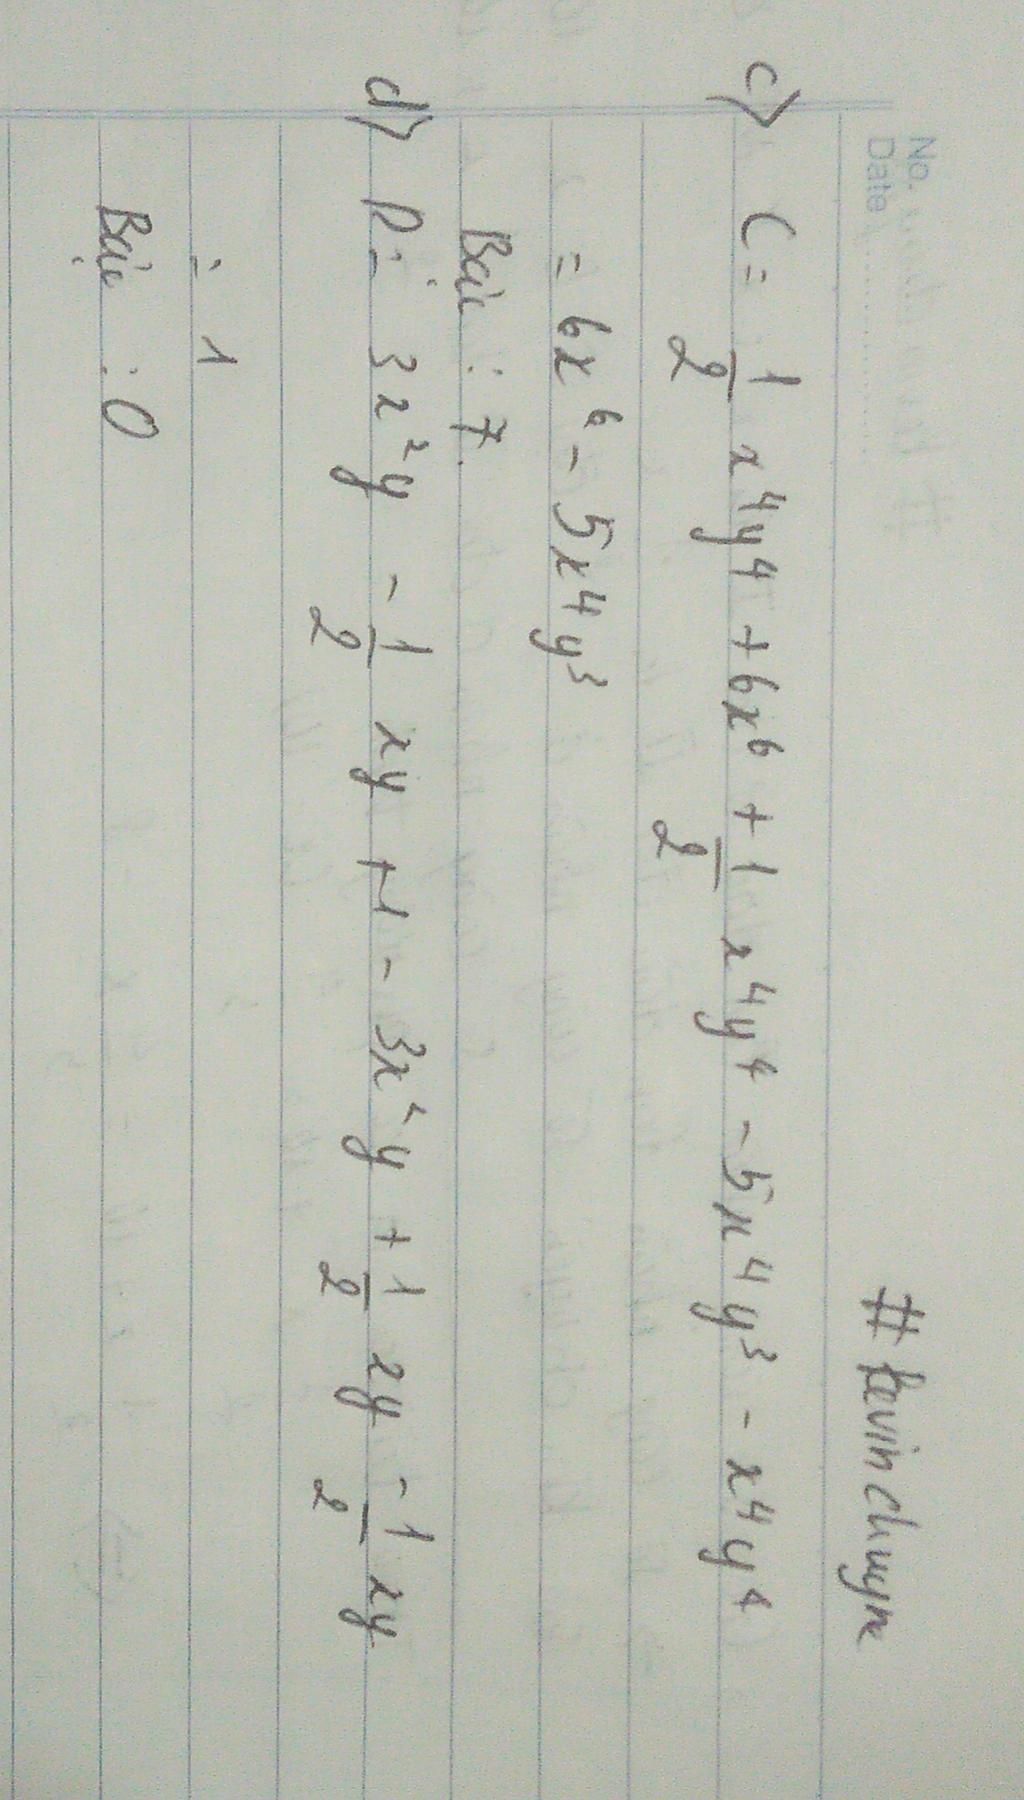 No.
Date
# kevin chuyn
c) C = 1/2 x⁴y⁴ + 6x⁶ + 1/2 x⁴y⁴ - 5x⁴y³ - x⁴y⁴
= 6x⁶ - 5x⁴y³
Bậc : 7.
d) D = 3x²y - 1/2 xy + 1 - 3x²y + 1/2 xy - 1/2 xy
= 1
Bậc : 0